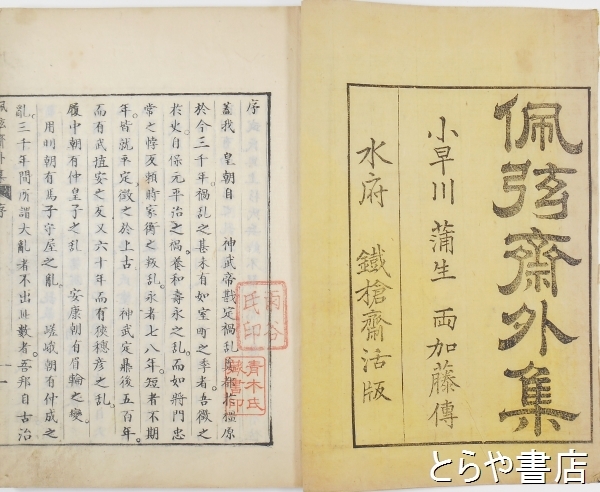 佩弦齋外集
小早川 蒲生 両加藤傳
水府 鐵槍齋活版
序
蓋我 皇朝自 神武帝戡定禍乱奠都於橿原
於今三千年禍乱之甚未有如室町之季者吾徴之
於史自保元平治之禍養和壽永之乱而如將門忠
常之悖反頼時家衡之叛乱永者七八年短者不期
年皆就平定徴之於上古 神武定鼎後五百年
而有武埴安之反又六十年而有狹穗彦之乱
履中朝有仲皇子之乱 安康朝有眉輪之變
用明朝有馬子守屋之亂 嵯峨朝有仲成之
亂三千年間所謂大亂者不出此數者吾邦自古治
佩弦齋外集 序 一
青木氏
藏書印
氏印
とらや書店